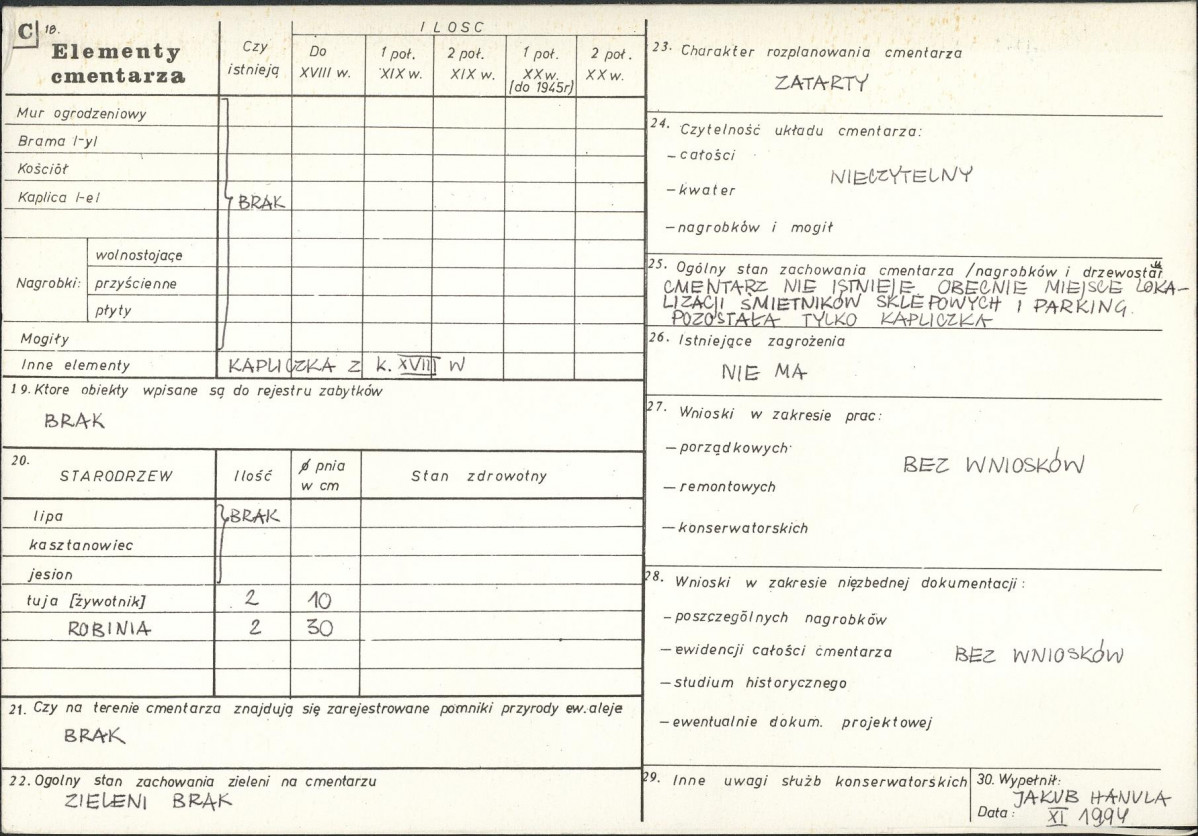 C 18.
Elementy
cmentarza
Czy
istnieją
ILOSC
Do
XVIII w.
1 poł.
XIX w.
2 poł.
XIX w.
1 poł.
XX w.
[do 1945r]
2 poł.
XX w.
Mur ogrodzeniowy
Brama l-yl
Kościół
Kaplica l-el
BRAK
Nagrobki:
wolnostojące
przyścienne
płyty
Mogiły
Inne elementy KAPLICZKA Z K. XVIII W
19. Ktore obiekty wpisane są do rejestru zabytków
BRAK
20.
STARODRZEW
Ilość
ø pnia
w cm
Stan zdrowotny
lipa BRAK
kasztanowiec
jesion
tuja [żywotnik] 2 10
ROBINIA 2 30
21. Czy na terenie cmentarza znajdują się zarejestrowane pomniki przyrody ew. aleje
BRAK
22. Ogolny stan zachowania zieleni na cmentarzu
ZIELENI BRAK
23. Charakter rozplanowania cmentarza
ZATARTY
24. Czytelność układu cmentarza:
– całości
NIECZYTELNY
– kwater
– nagrobków i mogił
25. Ogólny stan zachowania cmentarza /nagrobków i drzewostanu
CMENTARZ NIE ISTNIEJE. OBECNIE MIEJSCE LOKA-
LIZACJI ŚMIETNIKÓW SKLEPOWYCH I PARKING.
POZOSTAŁA TYLKO KAPLICZKA
26. Istniejące zagrożenia
NIE MA
27. Wnioski w zakresie prac:
– porządkowych
BEZ WNIOSKÓW
– remontowych
– konserwatorskich
28. Wnioski w zakresie nięzbednej dokumentacji:
– poszczególnych nagrobków
– ewidencji całości cmentarza BEZ WNIOSKÓW
– studium historycznego
– ewentualnie dokum. projektowej
29. Inne uwagi służb konserwatorskich
30. Wypełnił:
JAKUB HANULA
Data: XI 1994